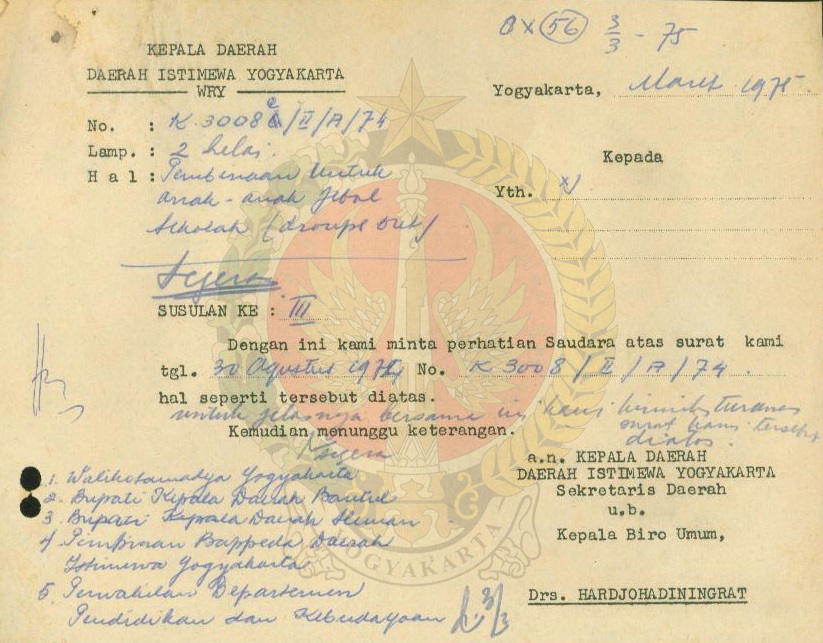 8x (56) 3/3 - 75
KEPALA DAERAH
DAERAH ISTIMEWA YOGYAKARTA
WRY
Yogyakarta, Maret 1975.
No. : K. 3008 /II/A/74
Lamp. : 2 helai.
Kepada
H a l : Pembinaan Untuk
Yth.
anak - anak Jebol
Sekolah (droupe Out)
Segera.
SUSULAN KE : III
Dengan ini kami minta perhatian Saudara atas surat kami
tgl. 30 Agustus 1974 No. K 3008/II/A/74.
hal seperti tersebut diatas.
untuk jelasnya bersama ini kami kirimkan turunan
surat kami tersebut
diatas.
Kemudian menunggu keterangan.
a.n. KEPALA DAERAH
DAERAH ISTIMEWA YOGYAKARTA
Sekretaris Daerah
u.b.
Kepala Biro Umum,
Drs. HARDJOHADININGRAT
1. Walikotamadya Yogyakarta
2. Bupati Kepala Daerah Bantul
3. Bupati Kepala Daerah Sleman
4 Pimpinan Bappeda Daerah
Istimewa Yogyakarta
5. Perwakilan Departemen
Pendidikan dan Kebudayaan
3/3
YOGYAKARTA